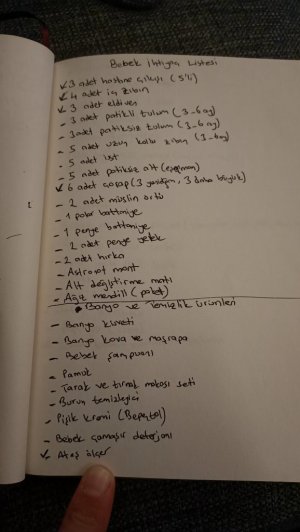 Bebek İhtiyaç Listesi
✓ 3 adet hastane çıkışı (5'li)
✓ 4 adet iç zıbın
✓ 3 adet eldiven
- 3 adet patikli tulum (3-6 ay)
- 3 adet patiksiz tulum (3-6 ay)
- 5 adet uzun kollu zıbın (3-6 ay)
- 5 adet üst
- 5 adet patiksiz alt (eşofman)
✓ 6 adet çorap (3 yenidoğan, 3 daha büyük)
- 2 adet müslin örtü
- 1 polar battaniye
- 1 penye battaniye
- 2 adet penye yelek
- 2 adet hırka
- Astronot mont
- Alt değiştirme matı
- Ağız mendili (paket)
• Banyo ve Temizlik Ürünleri
- Banyo küveti
- Banyo kova ve maşrapa
- Bebek şampuanı
- Pamuk
- Tarak ve tırnak makası seti
- Burun temizleyici
- Pişik kremi (Bepantol)
- Bebek çamaşır deterjanı
✓ Ateş ölçer